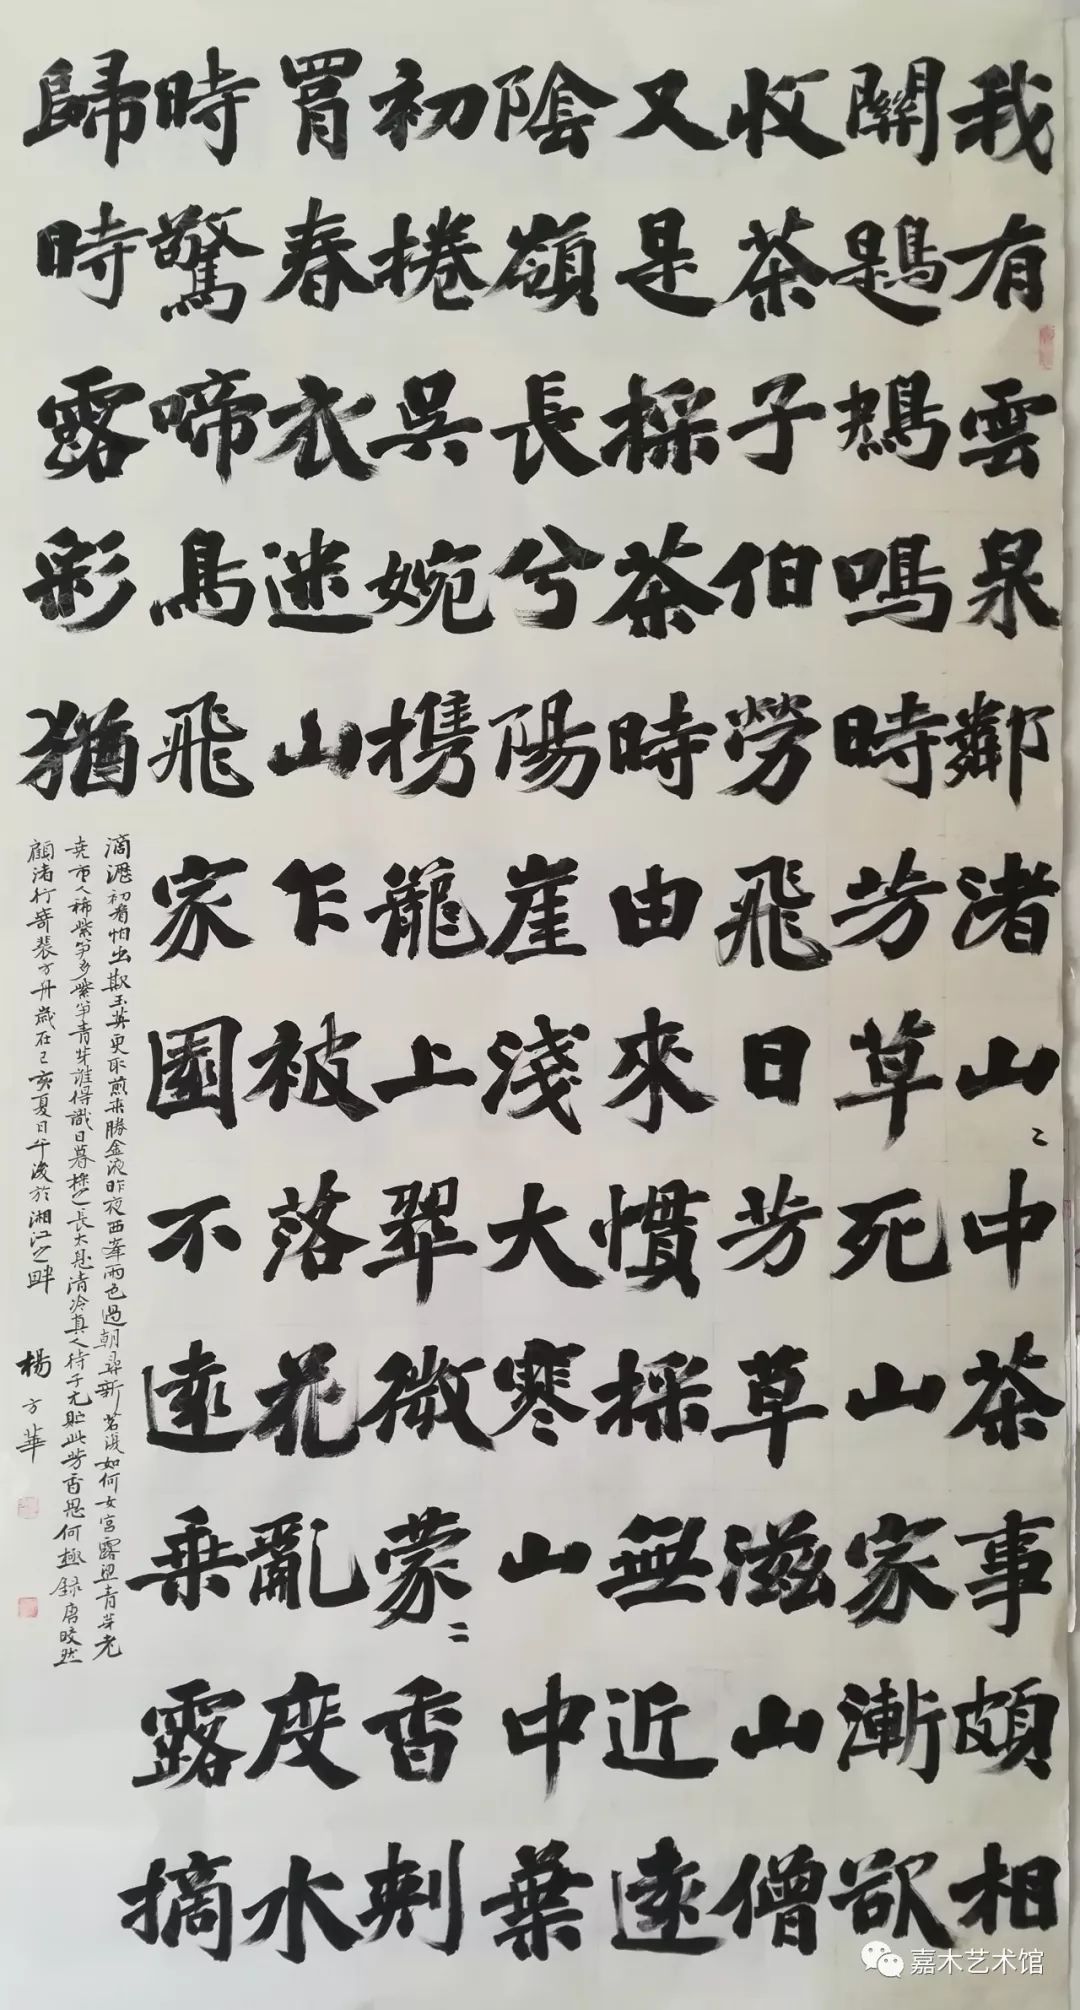 我有雲泉鄰渚山〻中茶事頗相
關鶗鴂鳴時芳草死山家漸欲
收茶子伯勞飛日芳草滋山僧
又是採茶時由來慣採無近遠
陰嶺長兮陽崖淺大寒山中葉
初捲吳婉携龍上翠微蒙〻香刺
罥春衣迷山乍被落花亂度水
時驚啼鳥飛家園不遠乗露摘
歸時露彩猶
滴瀝初看怕出欺玉英更取煎來勝金液昨夜西峯雨色過朝尋新茗復如何女宮露澀青芽老
堯市人稀紫笋多紫笋青芽誰得識日暮採之長太息清冷真人待子元貯此芳香思何極錄唐皎然
顧渚行寄裴方舟歲在己亥夏日午後於湘江之畔 楊方華
嘉木艺术馆